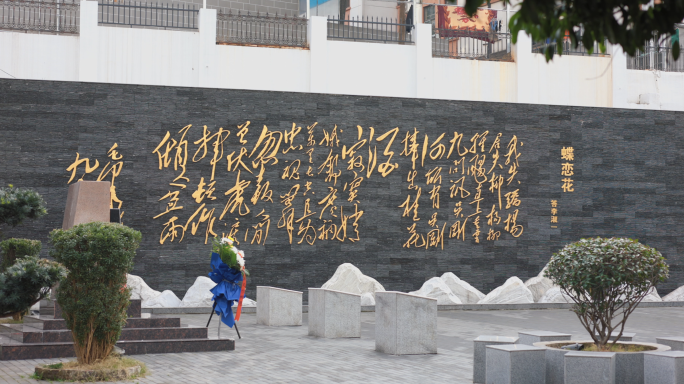 蝶恋花
答李淑一
我失骄杨
君失柳杨柳
轻飏直上重霄
九问讯吴刚
何所有吴刚
捧出桂花
酒
寂寞嫦
娥舒广袖
万里长空且为
忠魂舞
忽报人间
曾伏虎泪
飞顿作
倾盆雨